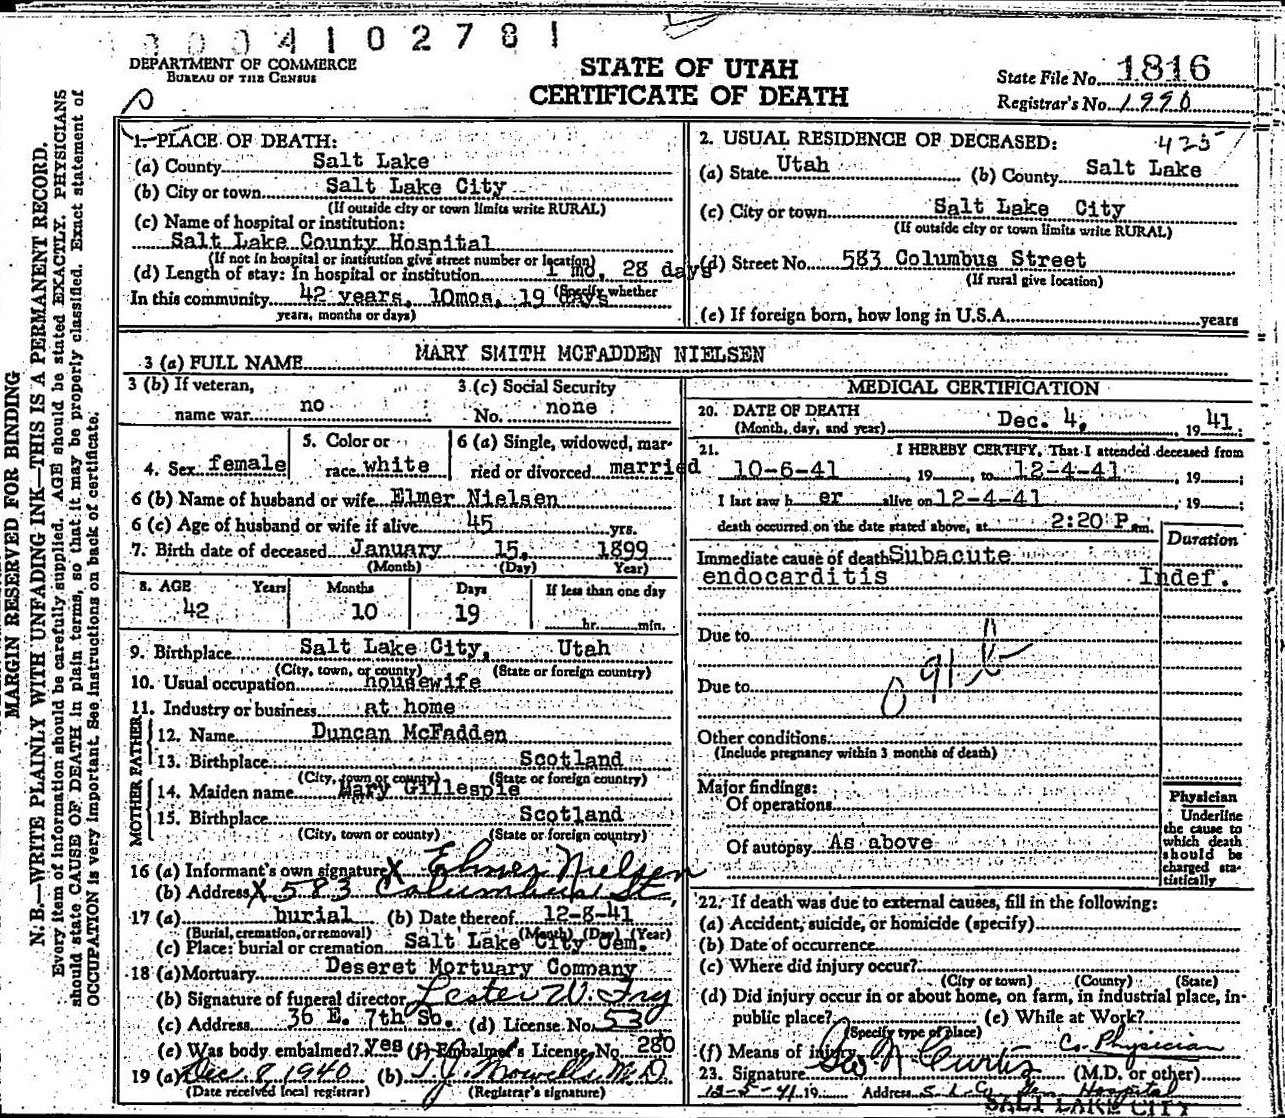 0004102781
DEPARTMENT OF COMMERCE
BUREAU OF THE CENSUS
STATE OF UTAH
CERTIFICATE OF DEATH
State File No. 1816
Registrar's No. 1990
MARGIN RESERVED FOR BINDING
N. B.—WRITE PLAINLY WITH UNFADING INK—THIS IS A PERMANENT RECORD.
Every item of information should be carefully supplied. AGE should be stated EXACTLY. PHYSICIANS
should state CAUSE OF DEATH in plain terms, so that it may be properly classified. Exact statement of
OCCUPATION is very important. See instructions on back of certificate.
1. PLACE OF DEATH:
(a) County Salt Lake
(b) City or town Salt Lake City
(If outside city or town limits write RURAL)
(c) Name of hospital or institution:
Salt Lake County Hospital
(If not in hospital or institution give street number or location)
(d) Length of stay: In hospital or institution 1 mo. 28 days
(Specify whether
In this community 42 years, 10mos, 19 days
years, months or days)
2. USUAL RESIDENCE OF DECEASED: 425
(a) State Utah (b) County Salt Lake
(c) City or town Salt Lake City
(If outside city or town limits write RURAL)
(d) Street No. 583 Columbus Street
(If rural give location)
(e) If foreign born, how long in U.S.A. years
3 (a) FULL NAME MARY SMITH MCFADDEN NIELSEN
3 (b) If veteran,
name war no
3 (c) Social Security
No. none
4. Sex female
5. Color or
race white
6 (a) Single, widowed, mar-
ried or divorced married
6 (b) Name of husband or wife Elmer Nielsen
6 (c) Age of husband or wife if alive 45 yrs.
7. Birth date of deceased January 15, 1899
(Month) (Day) Year)
8. AGE Years Months Days If less than one day
42 10 19 hr. min.
9. Birthplace Salt Lake City, Utah
(City, town, or county) (State or foreign country)
10. Usual occupation housewife
11. Industry or business at home
FATHER
12. Name Duncan McFadden
13. Birthplace Scotland
(City, town or county) (State or foreign country)
MOTHER
14. Maiden name Mary Gillespie
15. Birthplace Scotland
(City, town or county) (State or foreign country)
16 (a) Informant's own signature X Elmer Nielsen
(b) Address X 583 Columbus St.
17 (a) burial (b) Date thereof 12-8-41
(Burial, cremation, or removal) (Month) (Day) (Year)
(c) Place: burial or cremation Salt Lake City Cem.
18 (a) Mortuary Deseret Mortuary Company
(b) Signature of funeral director Lester W. Fry
(c) Address 36 E. 7th So. (d) License No. 530
(e) Was body embalmed? yes (f) Embalmer's License No. 280
19 (a) Dec 8, 1940 (b) M.D.
(Date received local registrar) (Registrar's signature)
MEDICAL CERTIFICATION
20. DATE OF DEATH
(Month, day, and year) Dec. 4, 19 41
21. I HEREBY CERTIFY, That I attended deceased from
10-6-41, 19 , to 12-4-41, 19 ;
I last saw h er alive on 12-4-41, 19 ;
death occurred on the date stated above, at 2:20 P.m.
Duration
Immediate cause of death Subacute
endocarditis Indef.
Due to
091b
Due to
Other conditions
(Include pregnancy within 3 months of death)
Major findings:
Of operations
Of autopsy As above
Physician
Underline
the cause to
which death
should be
charged sta-
tistically
22. If death was due to external causes, fill in the following:
(a) Accident, suicide, or homicide (specify)
(b) Date of occurrence
(c) Where did injury occur?
(City or town) (County) (State)
(d) Did injury occur in or about home, on farm, in industrial place, in-
public place? (e) While at Work?
(Specify type of place)
(f) Means of injury Co. Physician
23. Signature Geo N. Curtis (M.D. or other)
12-5-41 19 Address S. L. Co. Gen. Hospital
SALT LAKE CITY